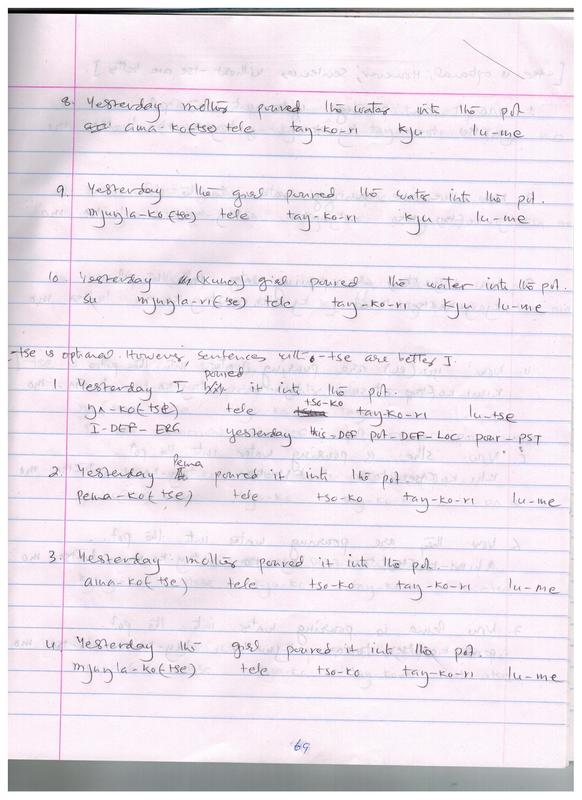 8. Yesterday mother poured the water into the pot
ama-ko(tse) tele tay-ko-ri kju lu-me
9. Yesterday the girl poured the water into the pot.
mjuŋla-ko(tse) tele tay-ko-ri kju lu-me
10. Yesterday (kuna) girl poured the water into the pot.
su mjuŋla-ri(tse) tele tay-ko-ri kju lu-me
-tse is optional. However, sentences with -tse are better I.
poured
1. Yesterday I it into the pot.
tso-ko
ŋʌ-ko(tse) tele tay-ko-ri lu-tse
I-DEF-ERG yesterday this-DEF pot-DEF-LOC pour-PST
?
Pema
2. Yesterday poured it into the pot.
pema-ko(tse) tele tso-ko tay-ko-ri lu-me
3. Yesterday mother poured it into the pot.
ama-ko(tse) tele tso-ko tay-ko-ri lu-me
4. Yesterday the girl poured it into the pot.
mjuŋla-ko(tse) tele tso-ko tay-ko-ri lu-me
69